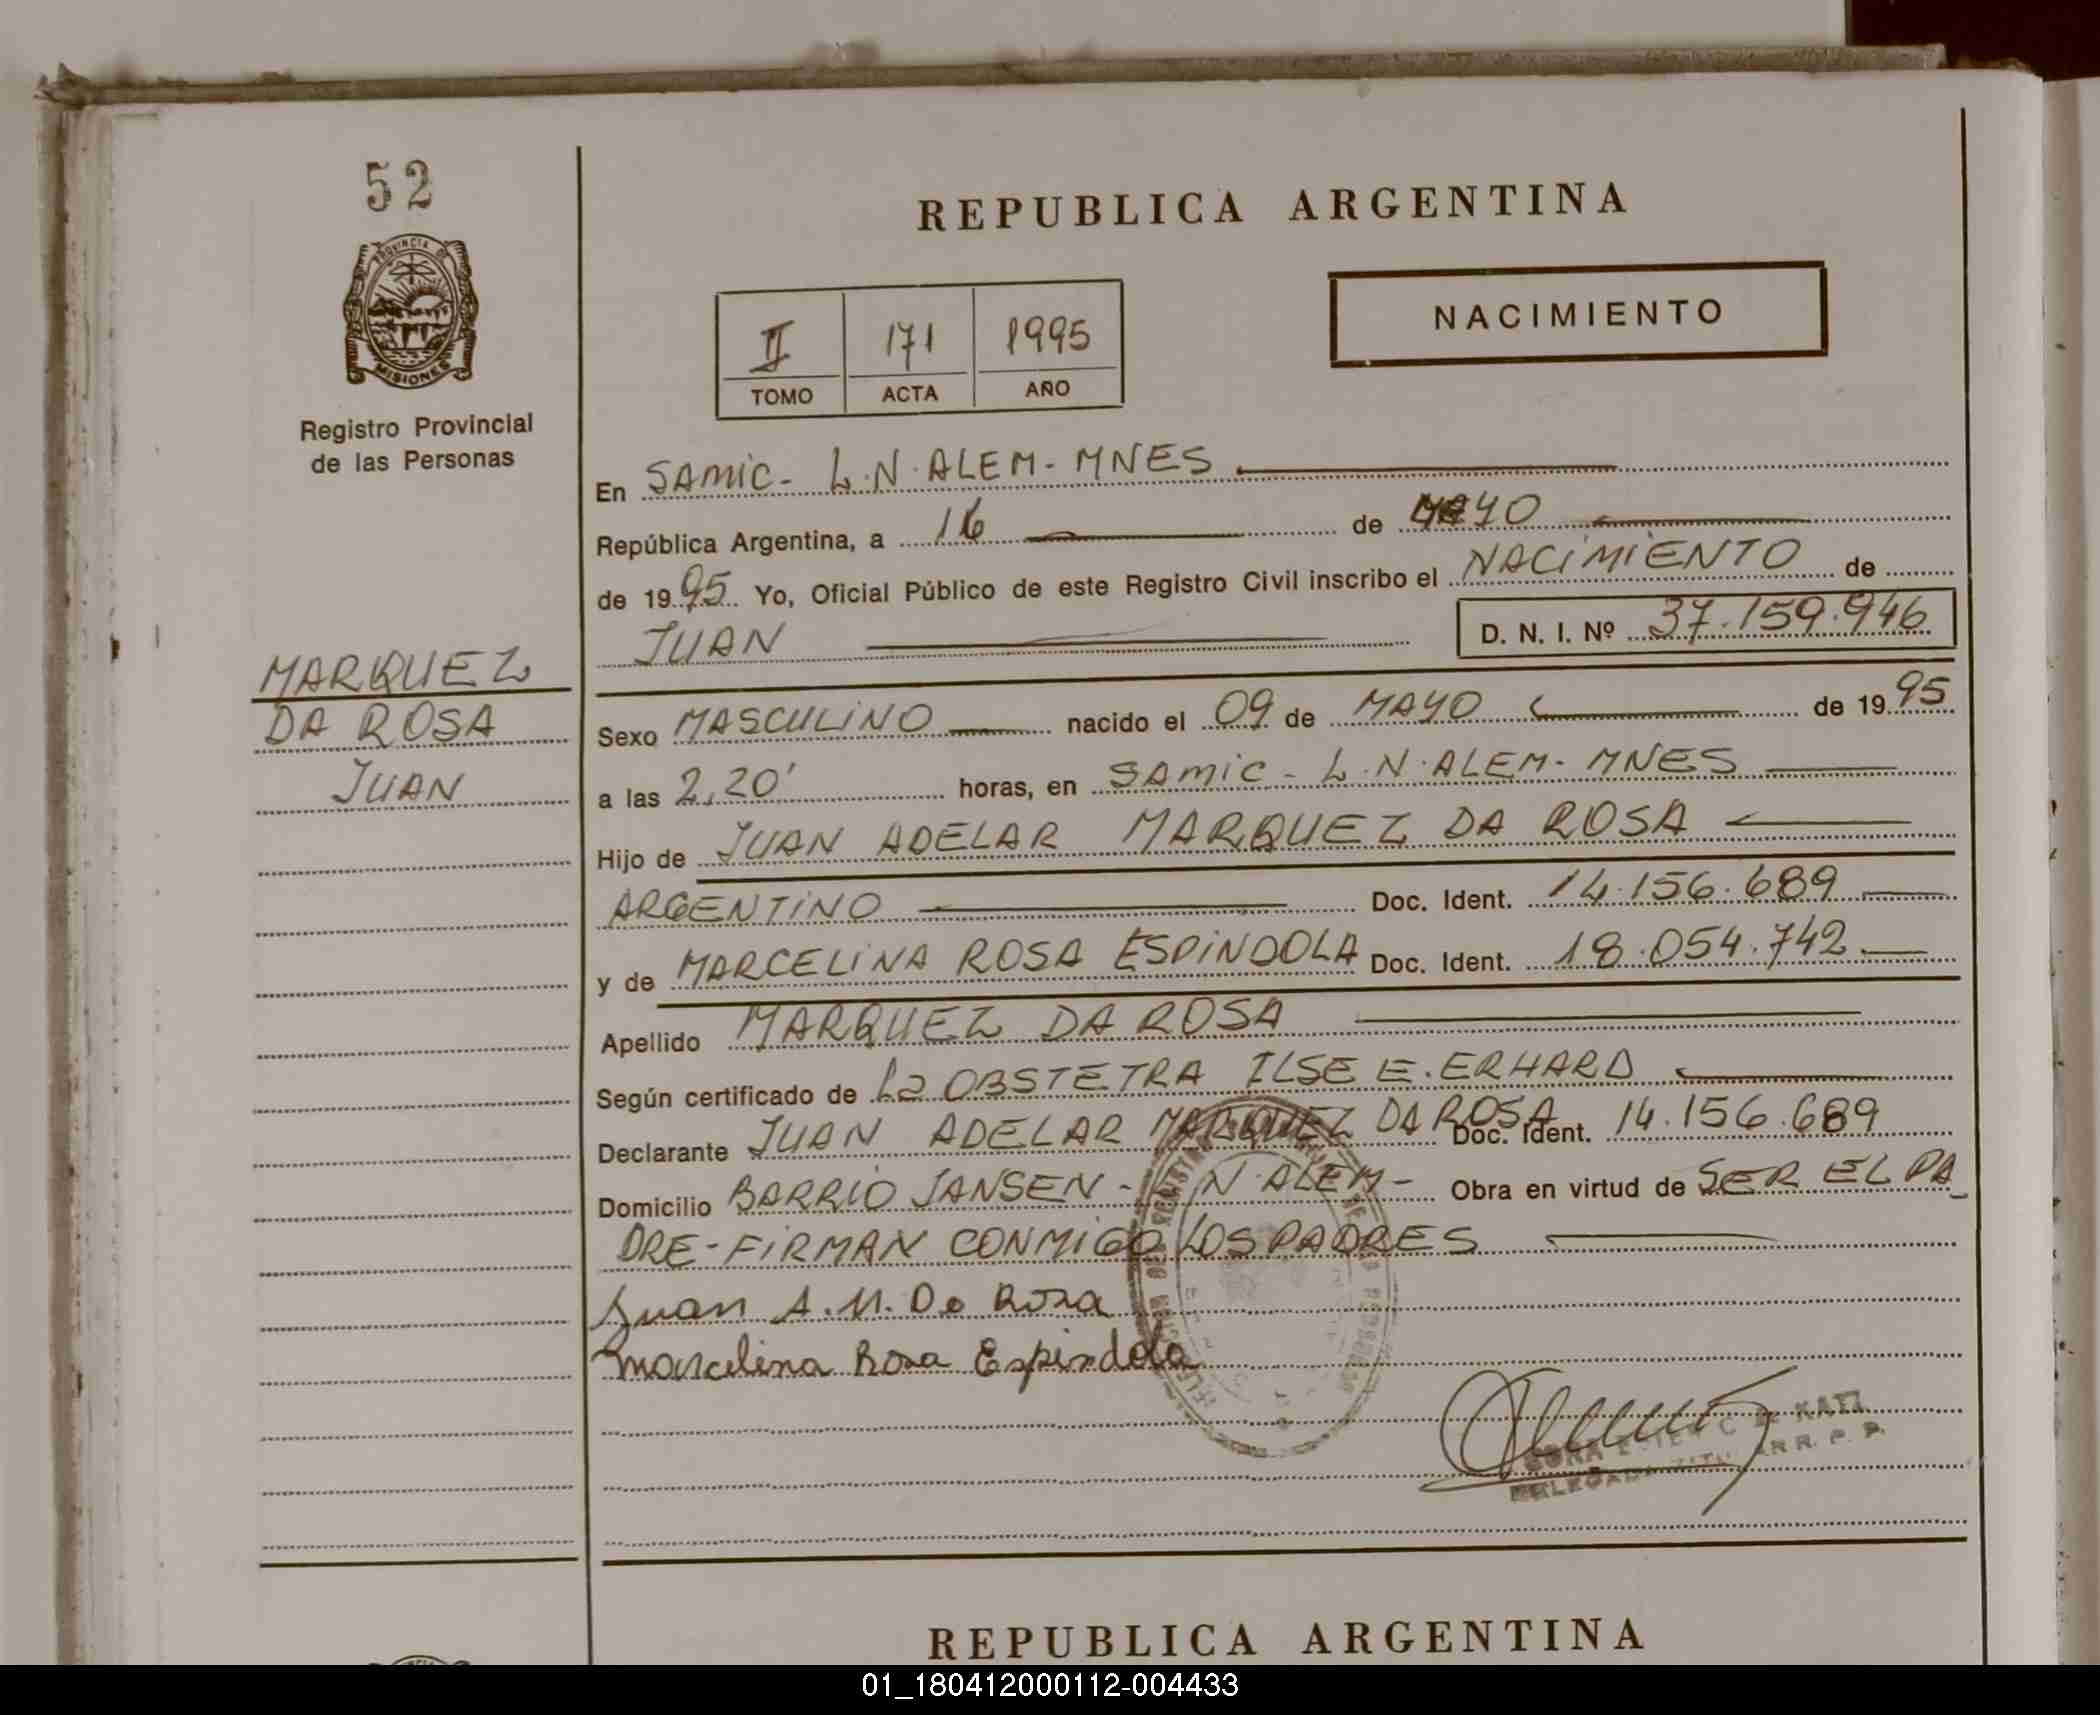 52
PROVINCIA DE
MISIONES
Registro Provincial
de las Personas
MARQUEZ
DA ROSA
JUAN
REPUBLICA ARGENTINA
II 171 1995
TOMO ACTA AÑO
NACIMIENTO
En SAMIC - L.N. ALEM - MNES
República Argentina, a 16 de MAYO
de 1995 Yo, Oficial Público de este Registro Civil inscribo el NACIMIENTO de
JUAN D. N. I. Nº 37.159.946
Sexo MASCULINO nacido el 09 de MAYO de 1995
a las 2,20' horas, en SAMIC - L.N. ALEM - MNES
Hijo de JUAN ADELAR MARQUEZ DA ROSA
ARGENTINO Doc. Ident. 14.156.689
y de MARCELINA ROSA ESPINDOLA Doc. Ident. 18.054.742
Apellido MARQUEZ DA ROSA
Según certificado de La OBSTETRA ILSE E. ERHARD
Declarante JUAN ADELAR MARQUEZ DA ROSA Doc. Ident. 14.156.689
Domicilio BARRIO JANSEN - L N. ALEM - Obra en virtud de SER EL PA_
DRE - FIRMAN CONMIGO LOS PADRES
Juan A. M. Da Rosa
Marcelina Rosa Espindola
REPUBLICA ARGENTINA
01_180412000112-004433